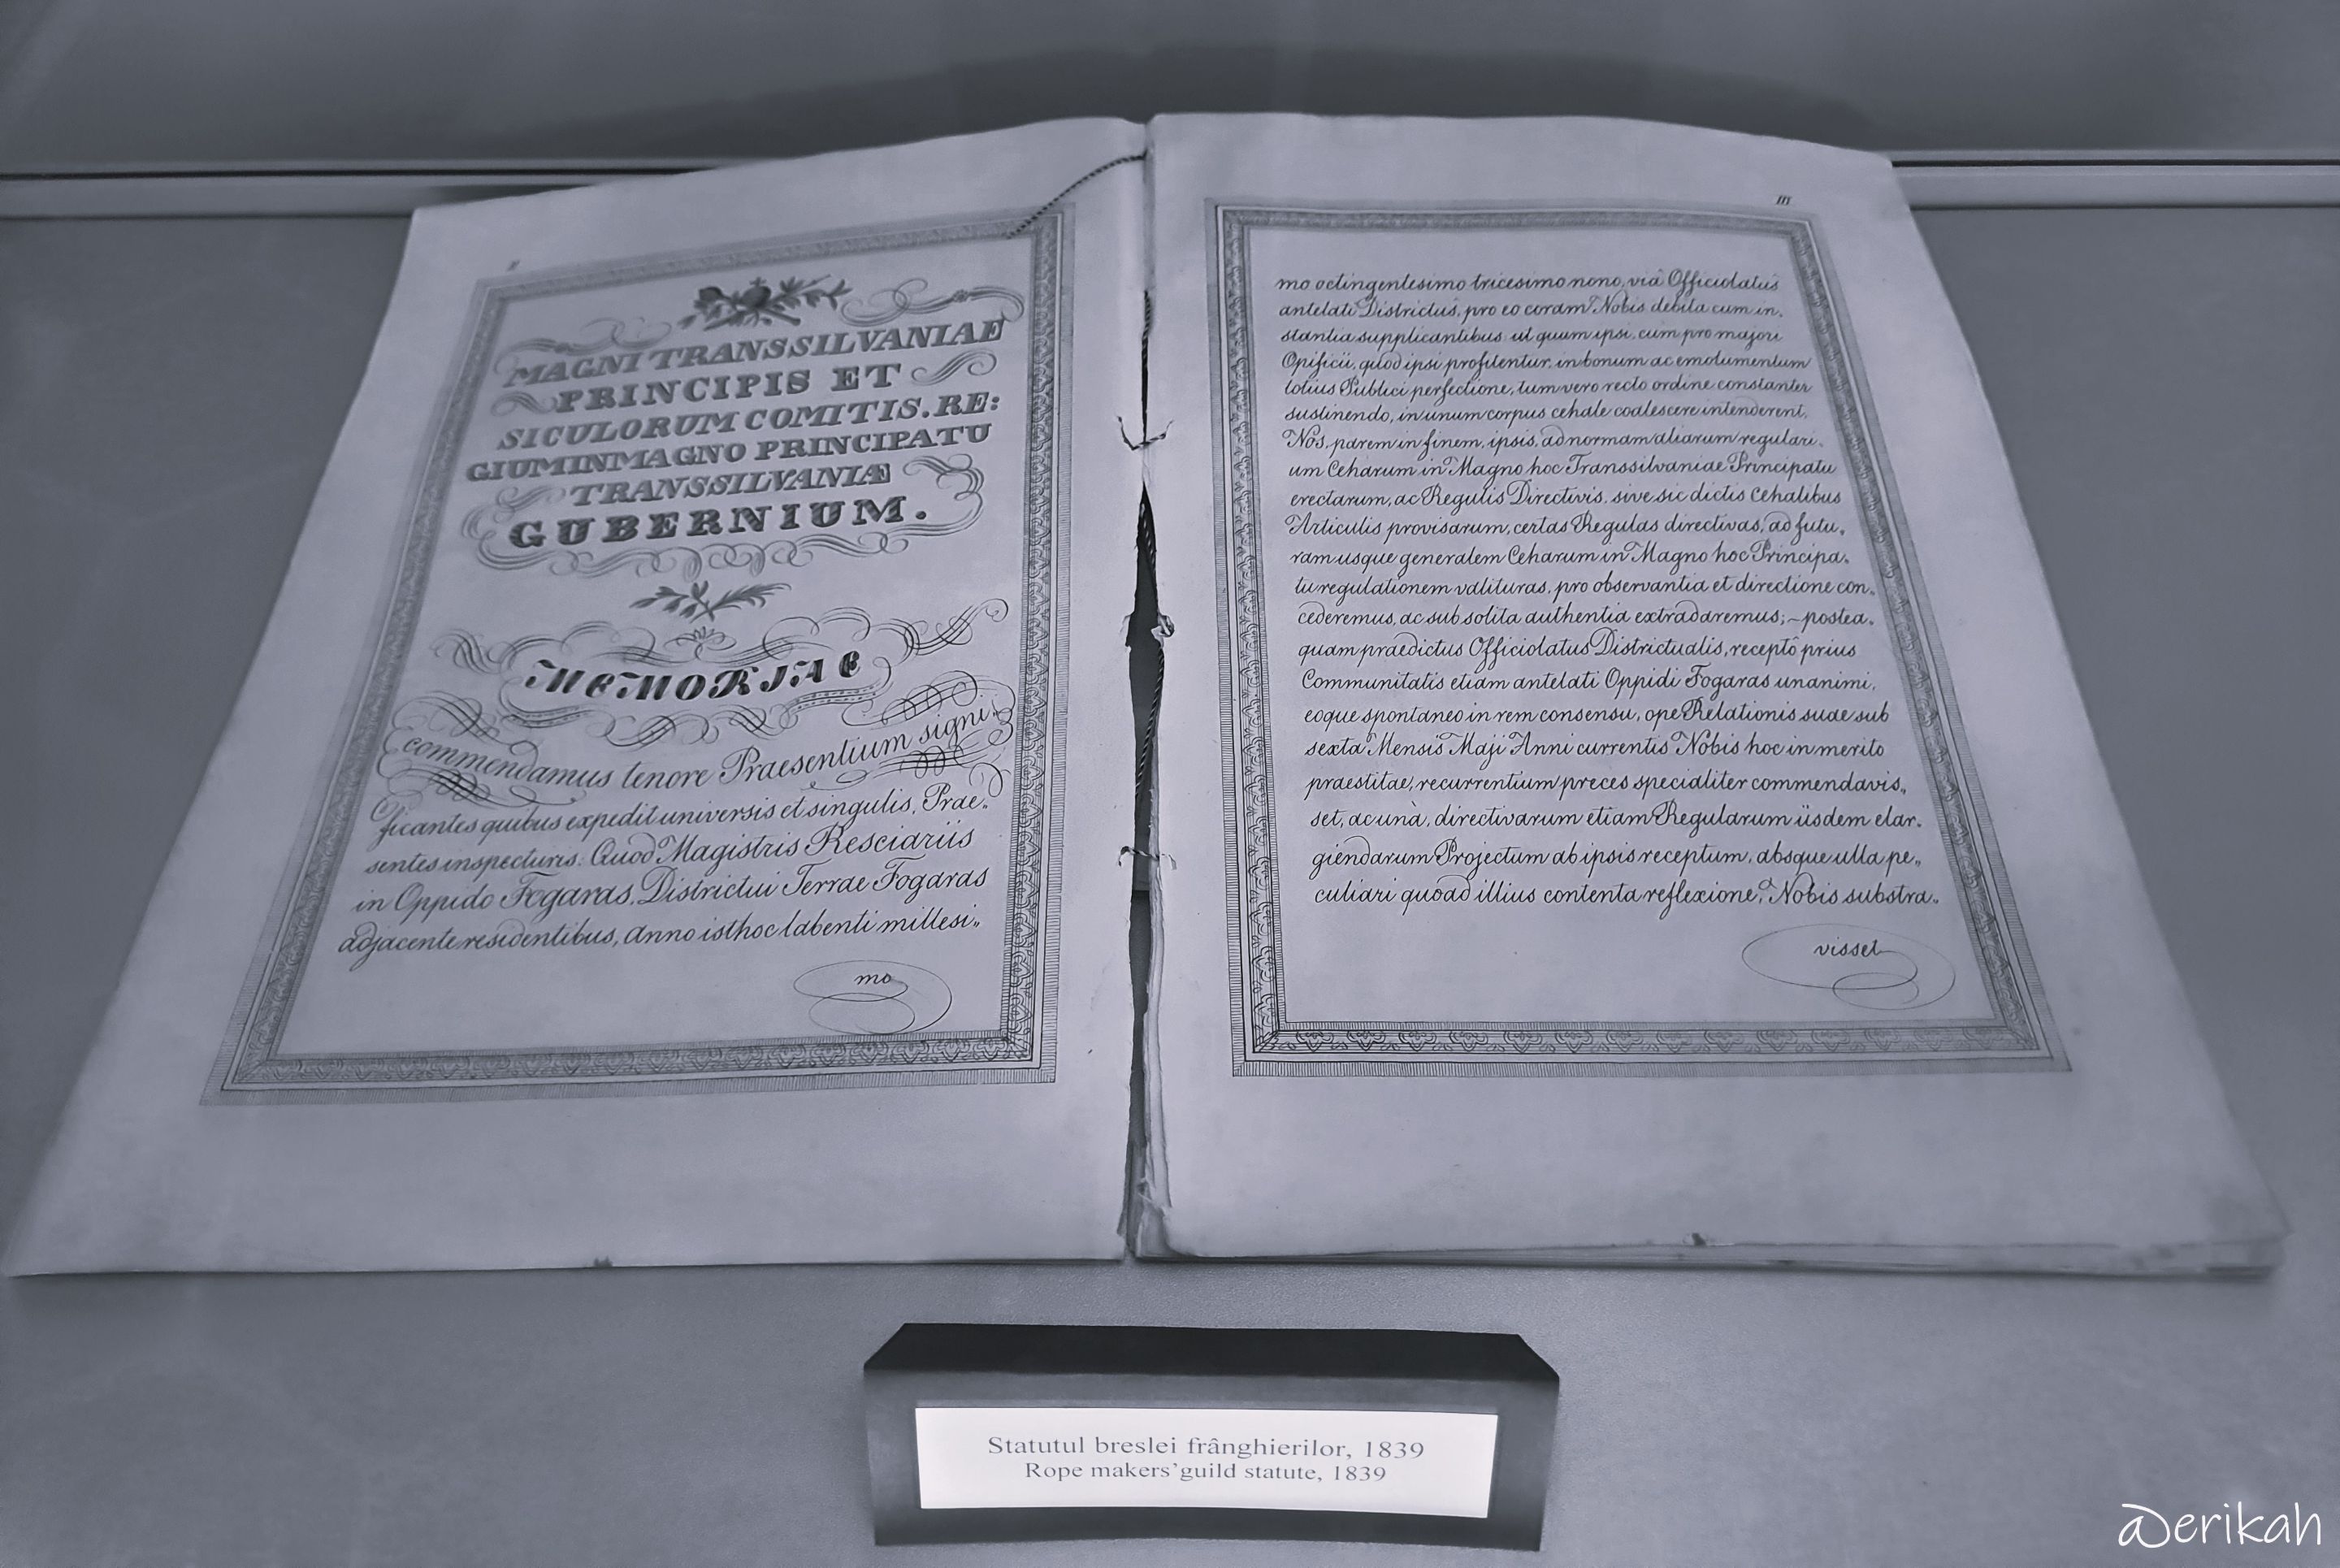 MAGNI TRANSSILVANIAE
PRINCIPIS ET
SICULORUM COMITIS. RE:
GIUM IN MAGNO PRINCIPATU
TRANSSILVANIÆ
GUBERNIUM.
MEMORIAE
commendamus tenore Praesentium signi„
ficantes quibus expedit universis et singulis, Prae„
sentes inspecturis: Quod Magistris Resciariis
in Oppido Fogaras, Districtui Terrae Fogaras
adjacente residentibus, anno isthoc labenti millesi„
mo
III
mo octingentesimo tricesimo nono, viâ Officiolatûs
antelati Districtûs, pro eo coram Nobis debita cum in„
stantia supplicantibus: ut quum ipsi, cum pro majori
Opificii, quod ipsi profitentur, in bonum ac emolumentum
totius Publici perfectione, tum vero recto ordine constanter
sustinendo, in unum corpus cehale coalescere intenderent,
Nos, parem in finem, ipsis, ad normam aliarum regulari„
um Ceharum in Magno hoc Transsilvaniae Principatu
erectarum, ac Regulis Directivis, sive sic dictis Cehalibus
Articulis provisarum, certas Regulas directivas, ad futu„
ram usque generalem Ceharum in Magno hoc Principa„
tu regulationem valituras, pro observantia et directione con„
cederemus, ac sub solita authentia extradaremus; ~ postea„
quam praedictus Officiolatus Districtualis, receptô prius
Communitatis etiam antelati Oppidi Fogaras unanimi,
eoque spontaneo in rem consensu, ope Relationis suae sub
sexta Mensis Maji Anni currentis Nobis hoc in merito
praestitae, recurrentium preces specialiter commendavis„
set, ac unà, directivarum etiam Regularum iisdem elar„
giendarum Projectum ab ipsis receptum, absque ulla pe„
culiari quoad illius contenta reflexione, Nobis substra„
visset
Statutul breslei frânghierilor, 1839
Rope makers' guild statute, 1839
@erikah